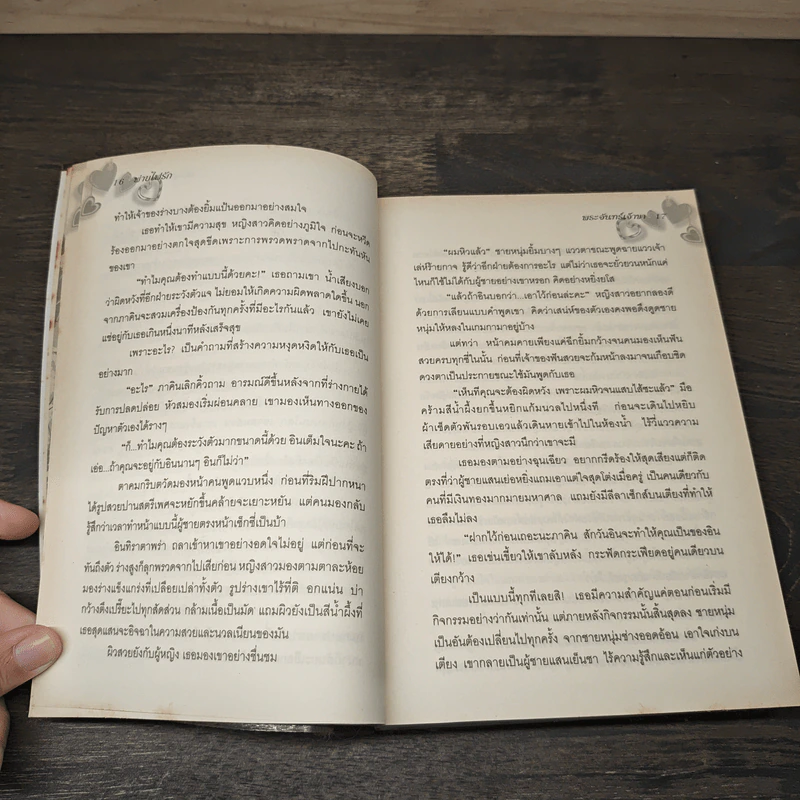 16 พ่ายไฟรัก
ทำให้เจ้าของร่างบางต้องยิ้มแป้นออกมาอย่างสมใจ
เธอทำให้เขามีความสุข หญิงสาวคิดอย่างภูมิใจ ก่อนจะหวีด
ร้องออกมาอย่างตกใจสุดขีดเพราะการพรวดพราดจากไปกะทันหัน
ของเขา
“ทำไมคุณต้องทำแบบนี้ด้วยคะ!” เธอถามเขา น้ำเสียงบอก
ว่าผิดหวังที่อีกฝ่ายระวังตัวแจ ไม่ยอมให้เกิดความผิดพลาดใดขึ้น นอก
จากภาคินจะสวมเครื่องป้องกันทุกครั้งที่มีอะไรกันแล้ว เขายังไม่เคย
แช่อยู่กับเธอเกินหนึ่งนาทีหลังเสร็จสุข
เพราะอะไร? เป็นคำถามที่สร้างความหงุดหงิดให้กับเธอเป็น
อย่างมาก
“อะไร” ภาคินเลิกคิ้วถาม อารมณ์ดีขึ้นหลังจากที่ร่างกายได้
รับการปลดปล่อย หัวสมองเริ่มผ่อนคลาย เขามองเห็นทางออกของ
ปัญหาตัวเองได้รางๆ
“ก็...ทำไมคุณต้องระวังตัวมากขนาดนี้ด้วย อินเต็มใจนะคะ ถ้า
เอ่อ...ถ้าคุณจะอยู่กับอินนานๆ อินก็ไม่ว่า”
ตาคมกริบตวัดมองหน้าคนพูดแวบหนึ่ง ก่อนที่ริมฝีปากหนา
ได้รูปสวยปานสตรีเพศจะหยักขึ้นคล้ายจะเยาะหยัน แต่คนมองกลับ
รู้สึกว่าเวลาทำหน้าแบบนี้ผู้ชายตรงหน้าเซ็กซี่เป็นบ้า
อินทิราตาพร่า ถลาเข้าหาเขาอย่างอดใจไม่อยู่ แต่ก่อนที่จะ
ทันถึงตัว ร่างสูงก็ลุกพรวดจากไปเสียก่อน หญิงสาวมองตามตาละห้อย
มองร่างแข็งแกร่งที่เปลือยเปล่าทั้งตัว รูปร่างเขาไร้ที่ติ อกแน่น บ่า
กว้างตึงเปรี๊ยะไปทุกสัดส่วน กล้ามเนื้อเป็นมัด แถมผิวยังเป็นสีน้ำผึ้งที่
เธอสุดแสนจะอิจฉาในความสวยและนวลเนียนของมัน
ผิวสวยยังกับผู้หญิง เธอมองเขาอย่างชื่นชม
พระจันทร์เจ้าขา 17
“ผมหิวแล้ว” ชายหนุ่มยิ้มบางๆ แววตาขณะพูดฉายแววเจ้า
เล่ห์ร้ายกาจ รู้ดีว่าอีกฝ่ายต้องการอะไร แต่ไม่ว่าเธอจะยั่วยวนหนักแค่
ไหนก็ใช้ไม่ได้กับผู้ชายอย่างเขาหรอก คิดอย่างหยิ่งยโส
“แล้วถ้าอินบอกว่า...เอาไว้ก่อนล่ะคะ” หญิงสาวอยากลองดี
ด้วยการเลียนแบบคำพูดเขา คิดว่าเสน่ห์ของตัวเองคงพอดึงดูดชาย
หนุ่มให้หลงในเกมกามาอยู่บ้าง
แต่ทว่า หน้าคมคายเพียงแค่ฉีกยิ้มกว้างจนคนมองเห็นฟัน
สวยครบทุกซี่ในนั้น ก่อนที่เจ้าของฟันสวยจะก้มหน้าลงมาจนเกือบชิด
ดวงตาเป็นประกายขณะใช้มันพูดกับเธอ
“เห็นทีคุณจะต้องผิดหวัง เพราะผมหิวจนแสบไส้ซะแล้ว” มือ
คร้ามสีน้ำผึ้งยกขึ้นหยิกแก้มนวลไปหนึ่งที ก่อนจะเดินไปหยิบ
ผ้าเช็ดตัวพันรอบเอวแล้วเดินหายเข้าไปในห้องน้ำ ไร้วี่แววความ
เสียดายอย่างที่หญิงสาวนึกว่าเขาจะมี
เธอมองตามอย่างฉุนเฉียว อยากกรีดร้องให้สุดเสียงแต่ก็ติด
ตรงที่ว่าผู้ชายแสนเย่อหยิ่งแถมเอาแต่ใจสุดโต่งเมื่อครู่ เป็นคนเดียวกับ
คนที่มีเงินทองมากมายมหาศาล แถมยังมีลีลาเซ็กส์บนเตียงที่ทำให้
เธอลืมไม่ลง
“ฝากไว้ก่อนเถอะนะภาคิน สักวันอินจะทำให้คุณเป็นของอิน
ให้ได้!” เธอเข่นเขี้ยวให้เขาลับหลัง กระฟัดกระเฟียดอยู่คนเดียวบน
เตียงกว้าง
เป็นแบบนี้ทุกทีเลยสิ! เธอมีความสำคัญแค่ตอนก่อนเริ่มมี
กิจกรรมอย่างว่ากันเท่านั้น แต่ภายหลังกิจกรรมนั้นสิ้นสุดลง ชายหนุ่ม
เป็นอันต้องเปลี่ยนไปทุกครั้ง จากชายหนุ่มช่างออดอ้อน เอาใจเก่งบน
เตียง เขากลายเป็นผู้ชายแสนเย็นชา ไร้ความรู้สึกและเห็นแก่ตัวอย่าง